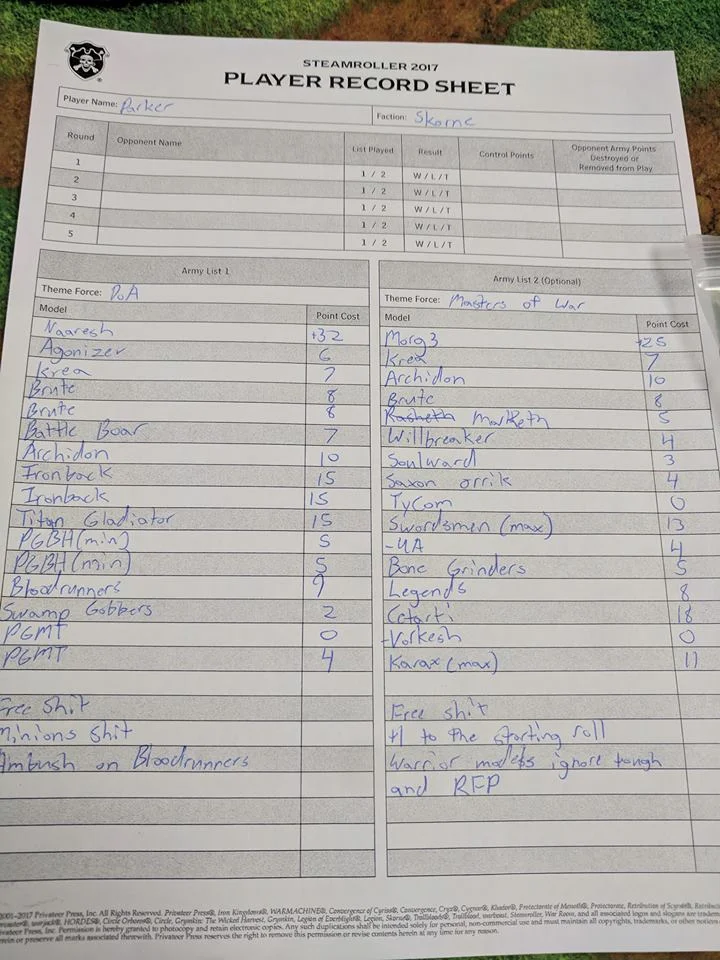 STEAMROLLER 2017
PLAYER RECORD SHEET
Player Name: Parker
Faction: Skorne
Round Opponent Name List Played Result Control Points Opponent Army Points Destroyed or Removed from Play
1 1 / 2 W / L / T
2 1 / 2 W / L / T
3 1 / 2 W / L / T
4 1 / 2 W / L / T
5 1 / 2 W / L / T
Army List 1
Theme Force: DoA
Model Point Cost
Naaresh +32
Agonizer 6
Krea 7
Brute 8
Brute 8
Battle Boar 7
Archidon 10
Ironback 15
Ironback 15
Titan Gladiator 15
PGBH (min) 5
PGBH (min) 5
Bloodrunners 9
Swamp Gobbers 2
PGMT 0
PGMT 4
Free shit
Minions shit
Ambush on Bloodrunners
Army List 2 (Optional)
Theme Force: Masters of War
Model Point Cost
Morg3 +25
Krea 7
Archidon 10
Brute 8
Rasheth Marketh 5
Willbreaker 4
Soulward 3
Saxon orrik 4
TyCom 0
Swordsmen (max) 13
-UA 4
Bone Grinders 5
Legends 8
Cetarti 18
-Vorkesh 0
Karax (max) 11
Free shit
+1 to the starting roll
Warrior models ignore tough
and RFP
2001-2017 Privateer Press, Inc. All Rights Reserved. Privateer Press®, Iron Kingdoms®, WARMACHINE®, Convergence of Cyriss®, Convergence, Cryx®, Cygnar®, Khador®, Protectorate of Menoth®, Protectorate, Retribution of Scyrah®,
warjack®, HORDES®, Circle Orboros®, Circle, Grymkin: The Wicked Harvest, Grymkin, Legion of Everblight®, Legion, Skorne®, Trollbloods®, Trollblood, warbeast, Steamroller, War Room, and all associated logos and slogans are
Press, Inc. Permission is hereby granted to photocopy and retain electronic copies. Any such duplications shall be intended solely for personal, non-commercial use and must maintain all copyrights, trademarks, or other notices
or preserve all marks associated therewith. Privateer Press reserves the right to remove this permission or revise contents herein at any time for any reason.